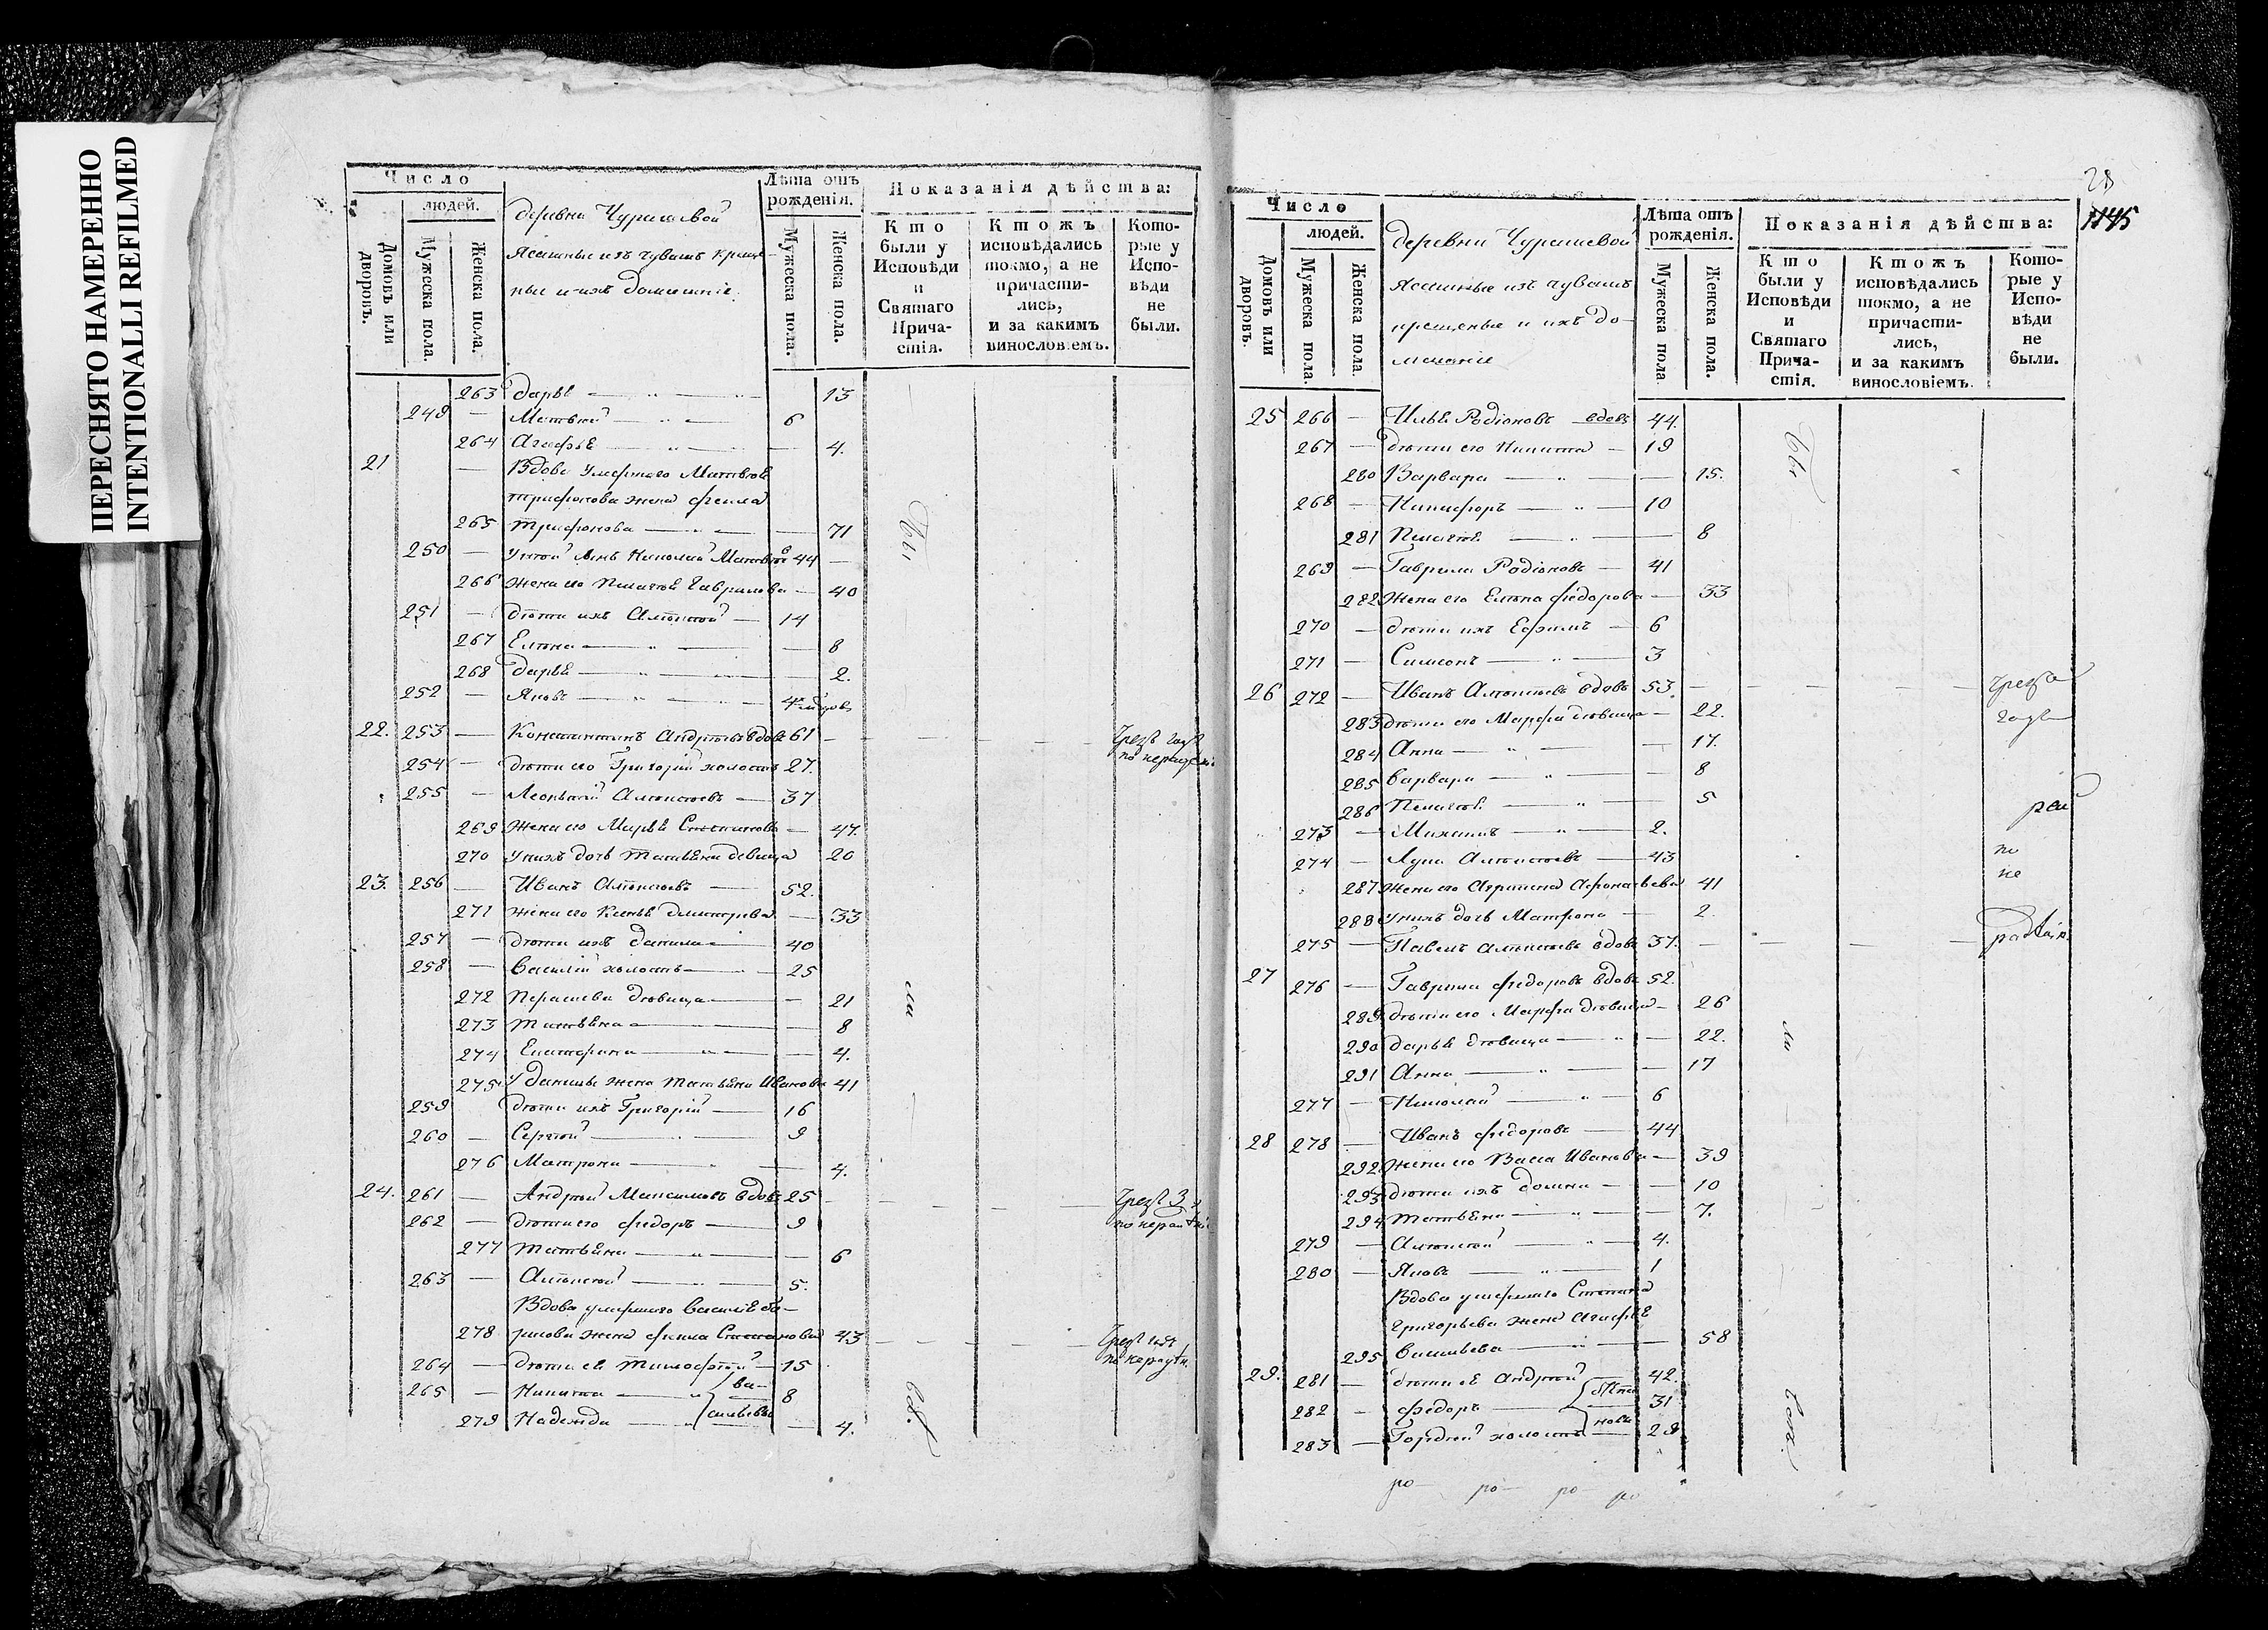 ПЕРЕСНЯТО НАМЕРЕННО
INTENTIONALLI REFILMED
Число
людей.
Домовъ или дворовъ.
Мужеска пола.
Женска пола.
деревни Чурашевой
Ясашные изъ чувашъ креще-
ные и ихъ домашніе.
Лѣта отъ рожденія.
Мужеска пола.
Женска пола.
Показанія дѣйства:
Кто были у Исповѣди и Святаго Причастія.
Ктожъ исповѣдались токмо, а не причастились, и за какимъ винословіемъ.
Которые у Исповѣди не были.
263 Дарья — 13
249 — Матвѣй — 6
264 Агафья — 4.
21 — Вдова умершаго Матвѣя
Трифонова жена Фекла
265 Трифонова — 71
250 — у ней сынъ Николай Матвѣевъ 44 —
266 жена его Пелагѣя Гаврилова — 40
251 — дѣти ихъ Алексѣй — 14
267 Елена — 8
268 Дарья — 2.
252 — Яковъ —
22. 253 — Константинъ Андрѣевъ вдовъ 61 — Чрезъ годъ
по нераденію
254 — дѣти его Григорій холостъ 27.
255 — Леонтій Алексѣевъ — 37
269 жена его Марья Степанова — 47.
270 у нихъ дочь Татьяна девица 20
23. 256 — Иванъ Алексѣевъ — 52.
271 жена его Ксенья Дмитрева — 33
257 — дѣти ихъ Данила — 40
258 — Василій холостъ — 25
272 Парасковья дѣвица — 21
273 Татьяна — 8
274 Екатерина — 4.
275 у Данилы жена Татьяна Иванова 41
259 дѣти ихъ Григорій — 16
260 — Сергѣй — 9
276 Матрона — 4.
24. 261 — Андрей Максимовъ вдовъ 25 — Чрезъ 3
по нерадѣнію
262 — дѣти его Федоръ — 9
277 Татьяна — 6
263 — Алексѣй — 5.
Вдова умершаго Василья
278 жена Фекла Степанова 43 — Чрезъ годъ
по
264 — дѣти ея Тимофѣй — 15
265 — Никита — Ва- 8
279 Надежда — сильевы — 4.
Бы
ли
всѣ.
28
1145
Число
людей.
Домовъ или дворовъ.
Мужеска пола.
Женска пола.
деревни Чурашевой
Ясашные изъ чувашъ
крещеные и ихъ до-
машніе
Лѣта отъ рожденія.
Мужеска пола
Женска пола.
Показанія дѣйства:
Кто были у Исповѣди и Святаго Причастія.
Ктожъ исповѣдались токмо, а не причастились, и за какимъ винословіемъ.
Которые у Исповѣди не были.
25 266 — Илья Родіоновъ вдовъ 44.
267 — дѣти его Никита — 19
280 Варвара — 15.
268 — Никифоръ — 10
281 Пелагея — 8
269 — Гаврила Родіоновъ — 41
282 жена его Елена Федорова — 33
270 — дѣти ихъ Ефимъ — 6
271 — Симеонъ — 3
26 272 — Иванъ Алексѣевъ вдовъ 53. — чрезъ
283 дѣти его Марфа дѣвица — 22.
284 Анна — 17.
285 Варвара — 8
286 Пелагея — 5
273 — Михаилъ — 2.
274 — Лука Алексѣевъ — 43
287 жена его Агрипена Афонасьева 41
288 у нихъ дочь Матрона — 2.
275 — Павелъ Алексѣевъ вдовъ 37. —
27 276 — Гаврила Федоровъ вдовъ 52.
289 дѣти его Марфа дѣвица — 26
290 Дарья дѣвица — 22.
291 Анна — 17
277 — Николай — 6
28 278 — Иванъ Федоровъ — 44
292 жена его Васса Иванова — 39
293 дѣти ихъ Домна — 10
294 Татьяна — 7.
279 — Алексѣй — 4.
280 — Яковъ — 1
Вдова умершаго Степана
Григорьева жена Агафья
295 Васильева — 58
29. 281 — дѣти ея Андрей — 42.
282 — Федоръ — 31
283 — Гордѣй холостъ — 29
Бы
ли
по
не
ро — ро — ро — ро